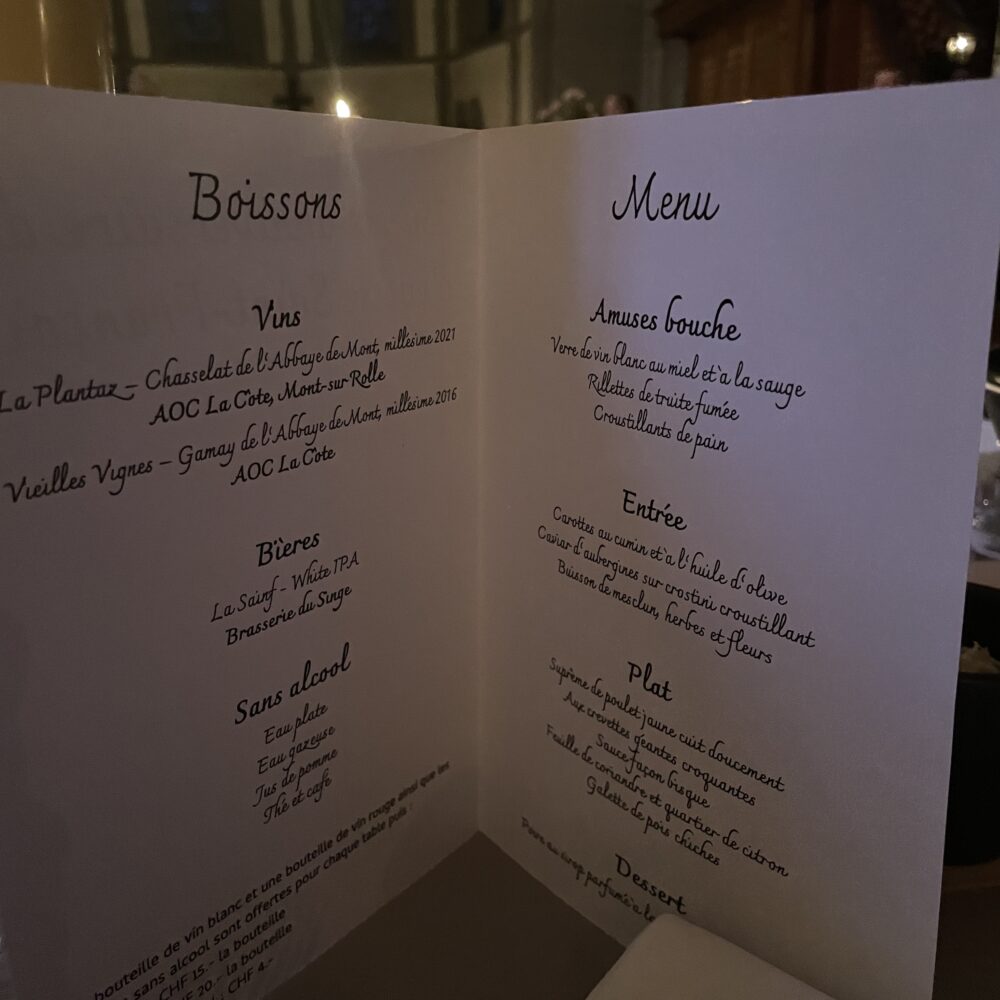 Boissons
Vins
La Plantaz – Chasselat de l'Abbaye de Mont, millésime 2021
AOC La Côte, Mont-sur Rolle
Vieilles Vignes – Gamay de l'Abbaye de Mont, millésime 2016
AOC La Côte
Bières
La Sainf - White IPA
Brasserie du Singe
Sans alcool
Eau plate
Eau gazeuse
Jus de pomme
Thé et café
bouteille de vin blanc et une bouteille de vin rouge ainsi que les
sans alcool sont offertes pour chaque table puis :
CHF 15.- la bouteille
20.- la bouteille
: CHF 4.-
Menu
Amuses bouche
Verre de vin blanc au miel et à la sauge
Rillettes de truite fumée
Croustillants de pain
Entrée
Carottes au cumin et à l'huile d'olive
Caviar d'aubergines sur crostini croustillant
Buisson de mesclun, herbes et fleurs
Plat
Suprême de poulet jaune cuit doucement
Aux crevettes géantes croquantes
Sauce façon bisque
Feuille de coriandre et quartier de citron
Galette de pois chiches
Dessert
au sirop parfumée à